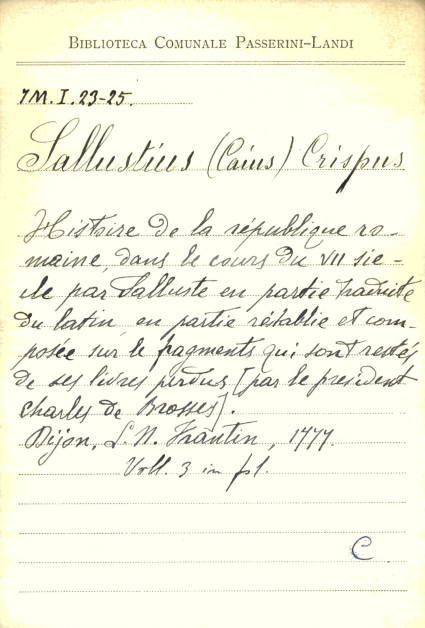 BIBLIOTECA COMUNALE PASSERINI-LANDI
7M.I.23-25.
Sallustius (Caius) Crispus
Histoire de la république ro-
maine, dans le cours du VII siè-
cle par Salluste en partie traduite
du latin, en partie rétablie et com-
posée sur le fragments qui sont restés
de ses livres perdus [par le president
Charles de Brosses].
Dijon, L. N. Frantin, 1777.
Voll. 3 in fol.
C